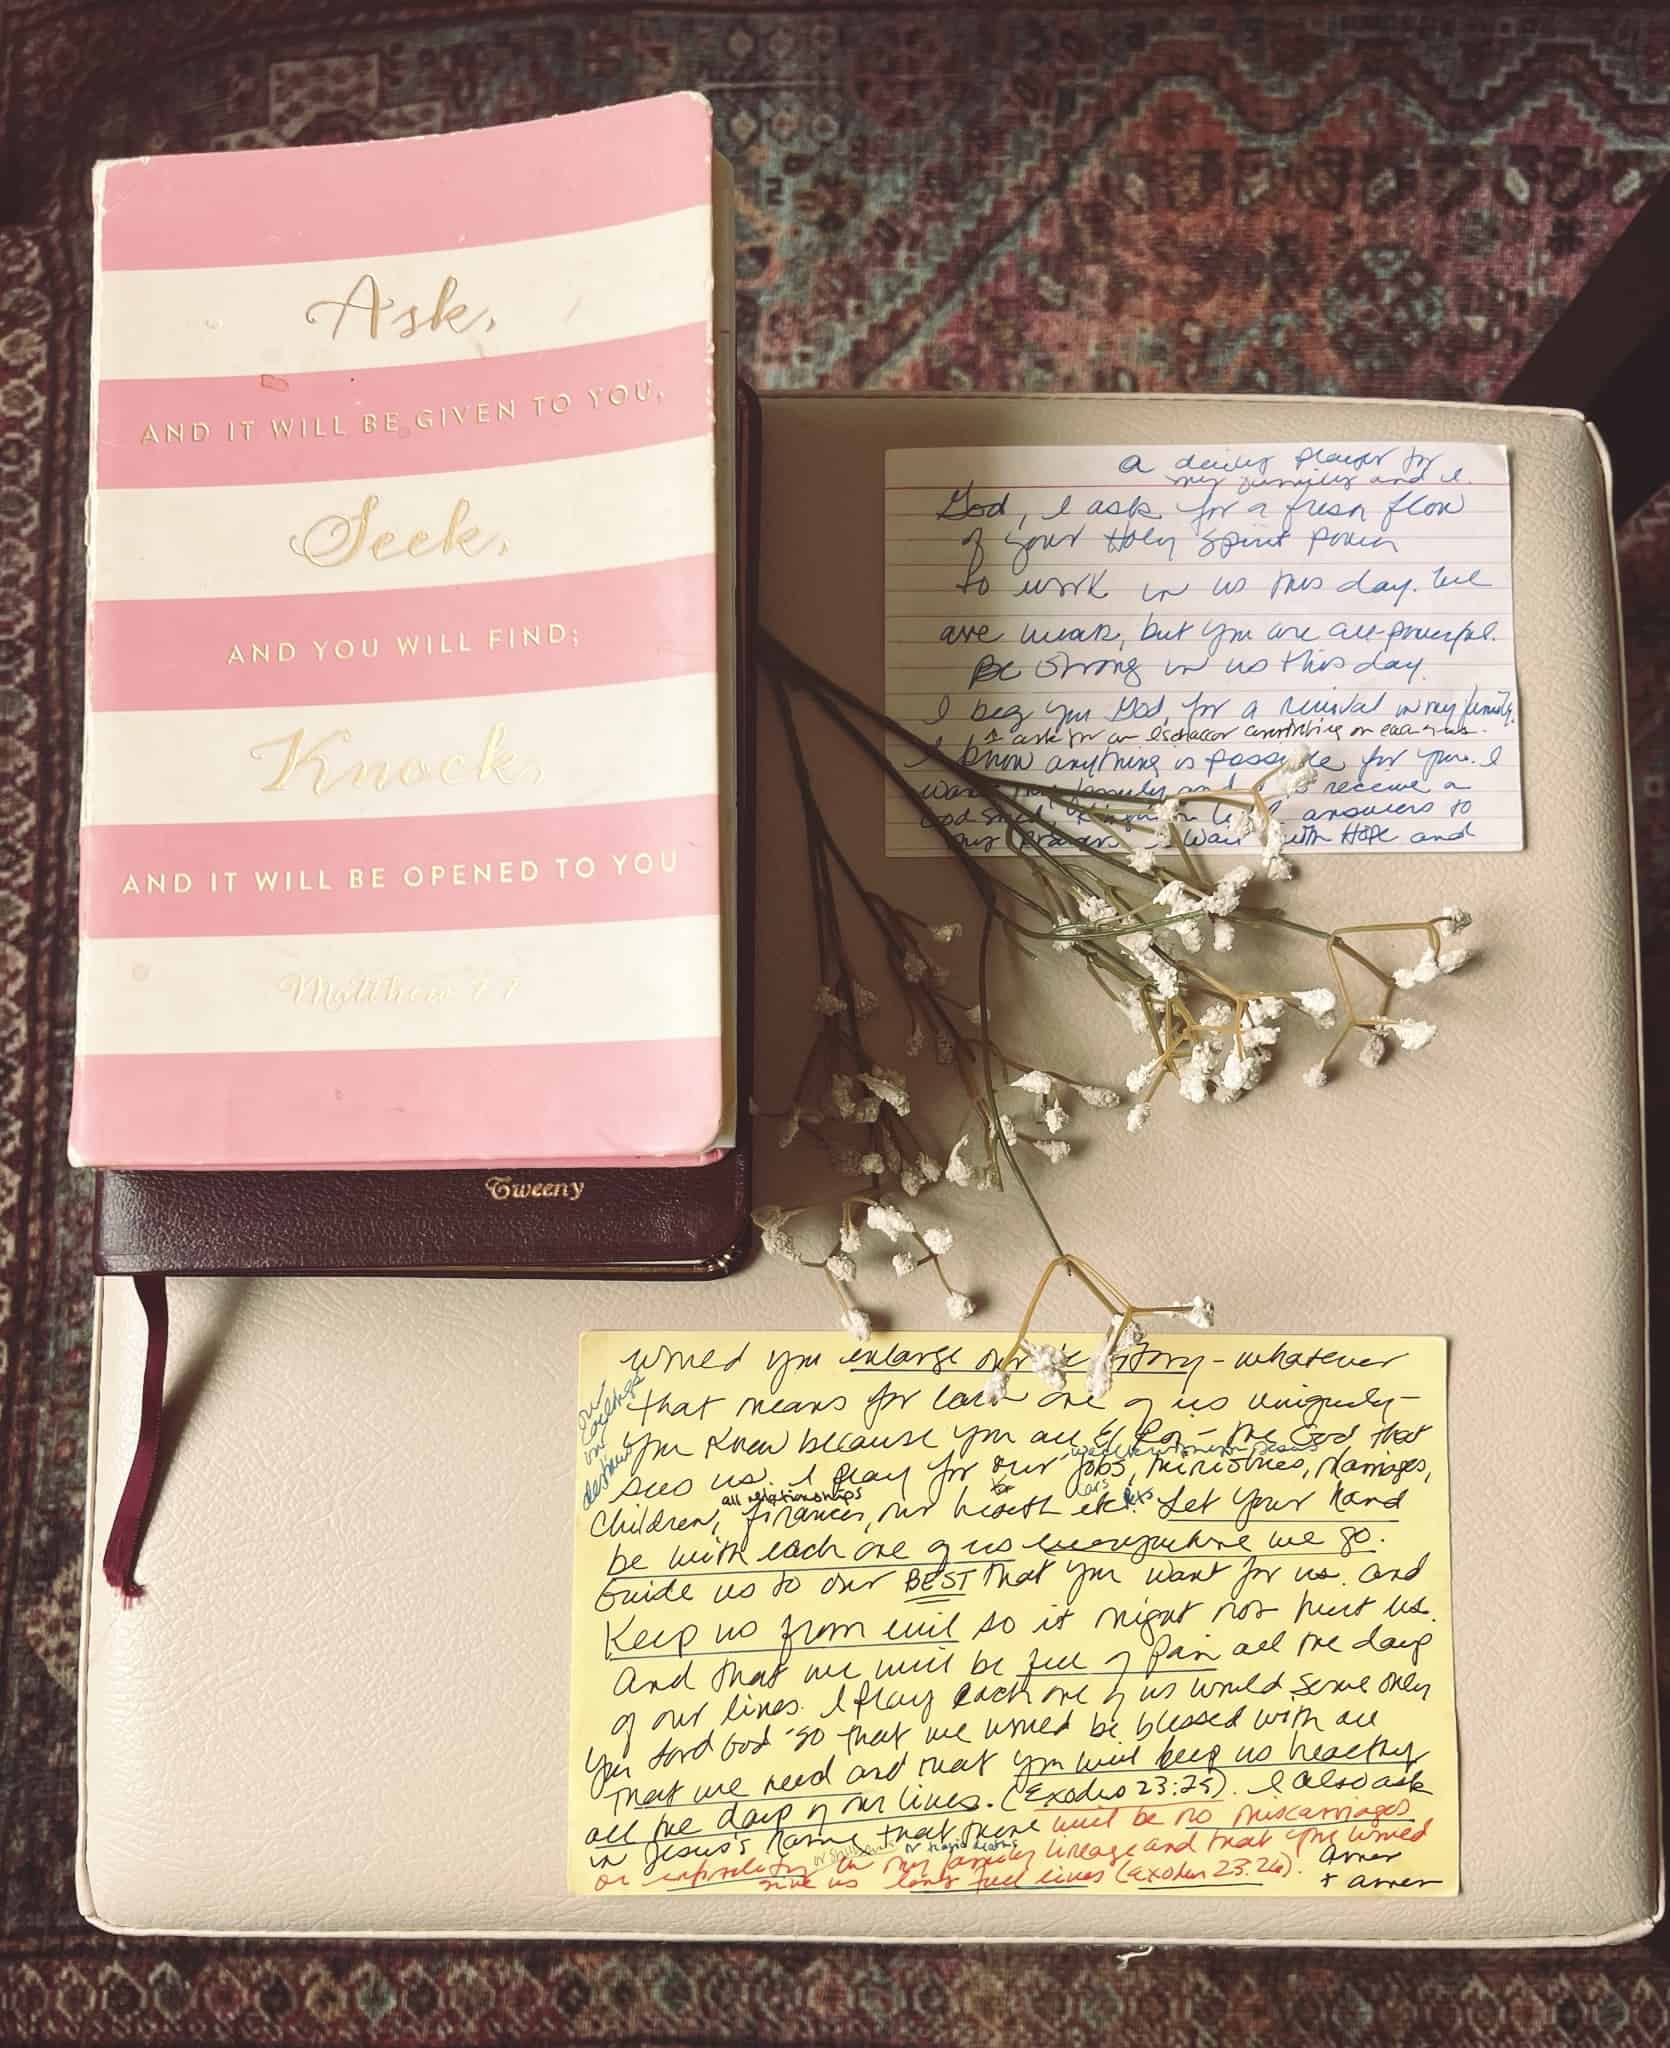 Ask,
AND IT WILL BE GIVEN TO YOU,
Seek,
AND YOU WILL FIND;
Knock,
AND IT WILL BE OPENED TO YOU
Matthew 7:7
Tweeny
a daily prayer for
my family and I.
God, I ask for a fresh flow
of your Holy Spirit power
to work in us this day. We
are weak, but you are all-powerful.
Be strong in us this day.
I beg you God, for a revival in my family.
I ask for an on each of us.
I know anything is possible for you. I
want my family and to receive a
God sized, answers to
my prayers. I wait with Hope and
would you enlarge our territory - whatever
that means for each one of us uniquely -
our callings
in
destiny
you know because you are El Roi - the God that
sees us. I pray for our jobs, ministries, marriages,
all relationships
cars
pets
children, finances, our health etc. Let your hand
be with each one of us everywhere we go.
Guide us to our BEST that you want for us. and
Keep us from evil so it might not hurt us.
And that we will be free of pain all the days
of our lives. I pray each one of us would serve only
you Lord God so that we would be blessed with all
that we need and that you will keep us healthy
all the days of our lives. (Exodus 23:25). I also ask
in Jesus's name that there will be no miscarriages
or tragic deaths
or infertility in my family lineage and that you would
give us long full lives (Exodus 23:26). amen
+ amen